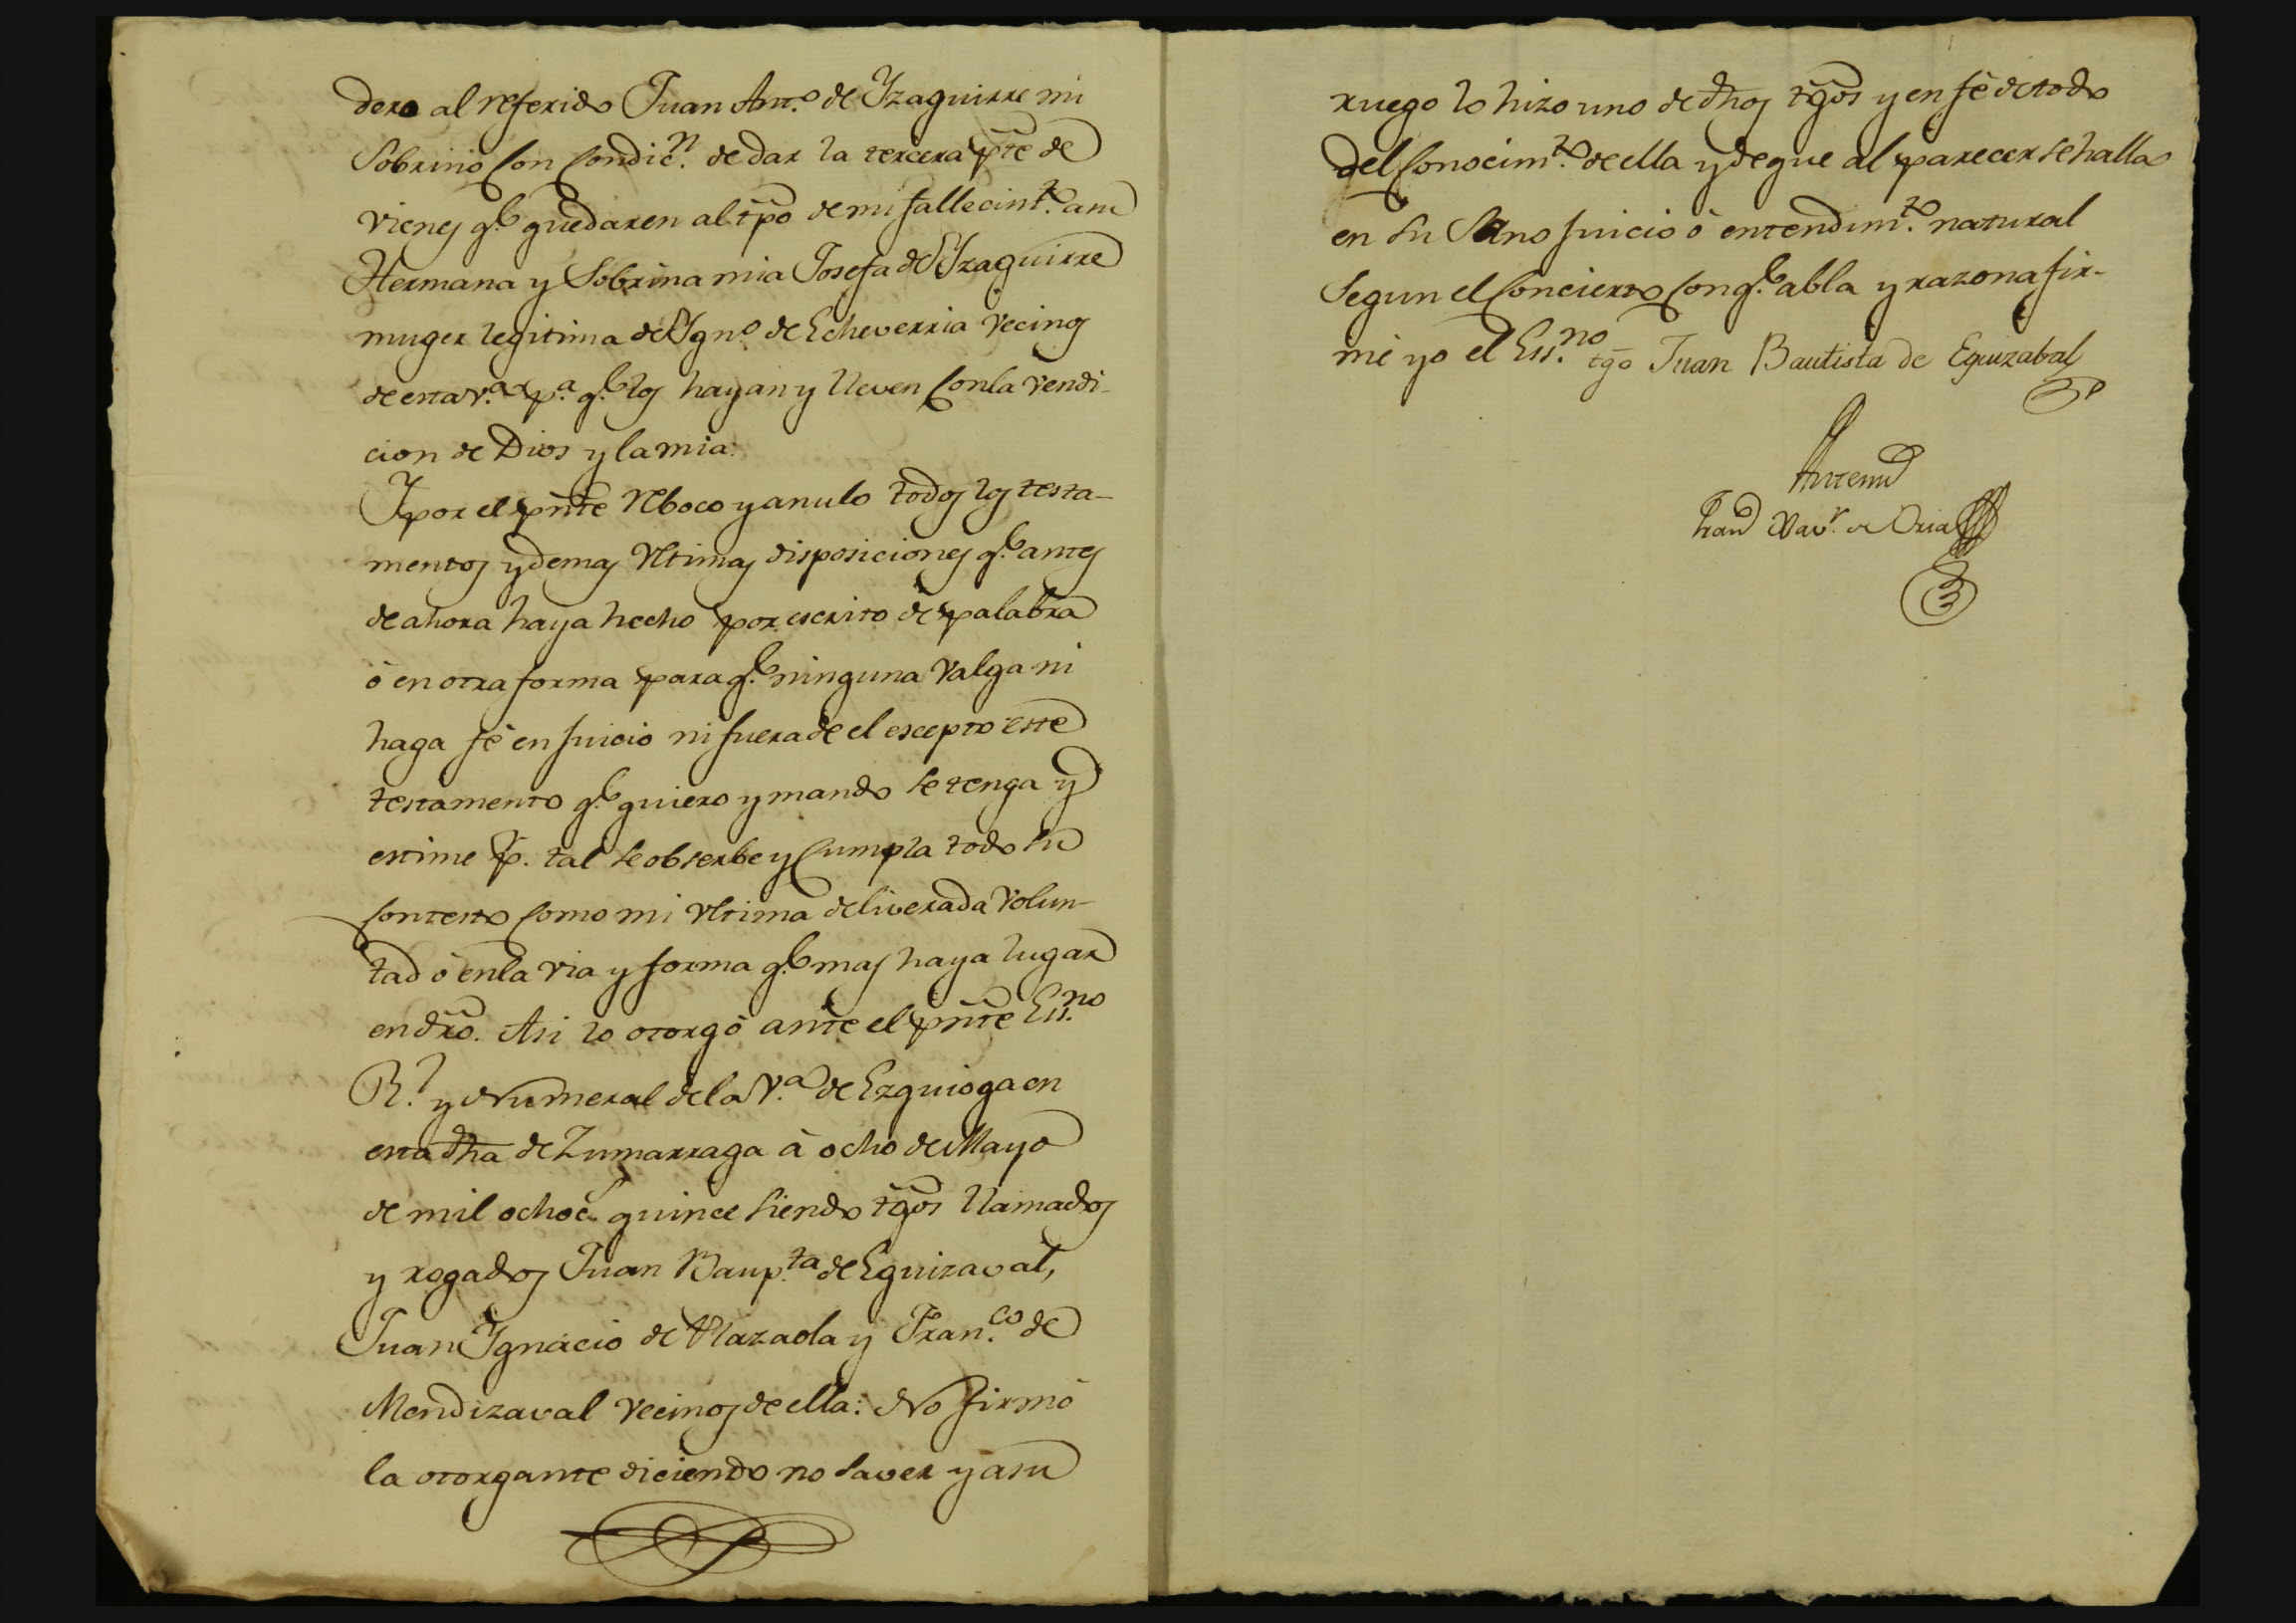 dero al referido Juan Ant.º de Yzaguirre mi
Sobrino con condic.n de dar la tercera pte de
vienes q.e quedaren al tpo de mi fallecim.to a su
Hermana y Sobrina mia Josefa de Yzaguirre
muger legitima de Ygn.º de Echeverria vecinos
de esta v.a p.a q.e los hayan y lleven con la vendi-
cion de Dios y la mia:
Y por el pnte reboco y anulo todos los testa-
mentos y demas ultimas disposiciones q.e antes
de ahora haya hecho por escrito de palabra
ò en otra forma para q.e ninguna valga ni
haga fè en juicio ni fuera de el escepto este
testamento q.e quiero y mando se tenga y
estime p. tal se obserbe y cumpla todo su
contesto como mi ultima deliverada volun-
tad ò en la via y forma q.e mas haya lugar
en dro. Asi lo otorgò ante el pnte Ess.no
R.l y Numeral de la V.a de Ezquioga en
esta dha de Zumarraga à ocho de Mayo
de mil ochoc.s quince siendo tgos llamados
y rogados Juan Baup.ta de Eguizaval,
Juan Ygnacio de Plazaola y Fran.co de
Mendizaval vecinos de ella: No firmò
la otorgante diciendo no saver y a su
ruego lo hizo uno de dhos tgos y en fè de todo
del conocim.to de ella y de que al parecer se halla
en su sano juicio ò entendim.to natural
segun el concierto con q.e abla y razona fir-
mè yo el Ess.no tgo Juan Bautista de Eguizabal
Antemi
Xav.r de Oria